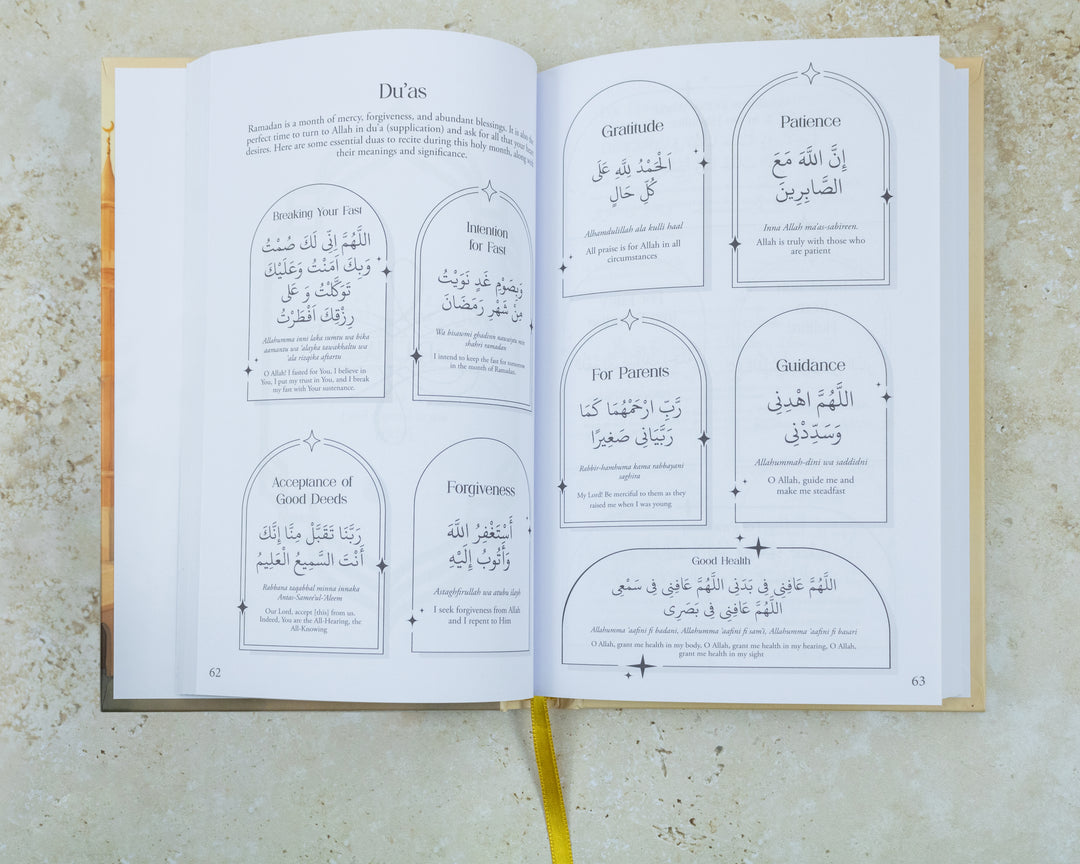 Du'as
Ramadan is a month of mercy, forgiveness, and abundant blessings. It is also the
perfect time to turn to Allah in du'a (supplication) and ask for all that your heart
desires. Here are some essential duas to recite during this holy month, along with
their meanings and significance.
Breaking Your Fast
اللَّهُمَّ اِنِّى لَكَ صُمْتُ
وَبِكَ اٰمَنْتُ وَعَلَيْكَ
تَوَكَّلْتُ وَ عَلى
رِزْقِكَ اَفْطَرْتُ
Allahumma inni laka sumtu wa bika
aamantu wa 'alayka tawakkaltu wa
'ala rizqika aftartu
O Allah! I fasted for You, I believe in
You, I put my trust in You, and I break
my fast with Your sustenance.
Intention
for Fast
وَبِصَوْمِ غَدٍ نَوَيْتُ
مِنْ شَهْرِ رَمَضَانَ
Wa bisawmi ghadinn nawaiytu min
shahri ramadan
I intend to keep the fast for tomorrow
in the month of Ramadan.
Acceptance of
Good Deeds
رَبَّنَا تَقَبَّلْ مِنَّا إِنَّكَ
أَنْتَ السَّمِيعُ الْعَلِيمُ
Rabbana taqabbal minna innaka
Antas-Samee'ul-'Aleem
Our Lord, accept [this] from us.
Indeed, You are the All-Hearing, the
All-Knowing
Forgiveness
أَسْتَغْفِرُ اللَّهَ
وَأَتُوبُ إِلَيْهِ
Astaghfirullah wa atubu ilayh
I seek forgiveness from Allah
and I repent to Him
62
Gratitude
اَلْحَمْدُ لِلَّهِ عَلَى
كُلِّ حَالٍ
Alhamdulillah ala kulli haal
All praise is for Allah in all
circumstances
Patience
إِنَّ اللَّهَ مَعَ
الصَّابِرِينَ
Inna Allah ma'as-sabireen.
Allah is truly with those who
are patient
For Parents
رَّبِّ ارْحَمْهُمَا كَمَا
رَبَّيَانِى صَغِيرًا
Rabbir-hamhuma kama rabbayani
saghira
My Lord! Be merciful to them as they
raised me when I was young
Guidance
اللَّهُمَّ اهْدِنِى
وَسَدِّدْنِى
Allahummah-dini wa saddidni
O Allah, guide me and
make me steadfast
Good Health
اللَّهُمَّ عَافِنِى فِى بَدَنِى اللَّهُمَّ عَافِنِى فِى سَمْعِى
اللَّهُمَّ عَافِنِى فِى بَصَرِى
Allahumma 'aafini fi badani, Allahumma 'aafini fi sam'i, Allahumma 'aafini fi basari
O Allah, grant me health in my body, O Allah, grant me health in my hearing, O Allah,
grant me health in my sight
63